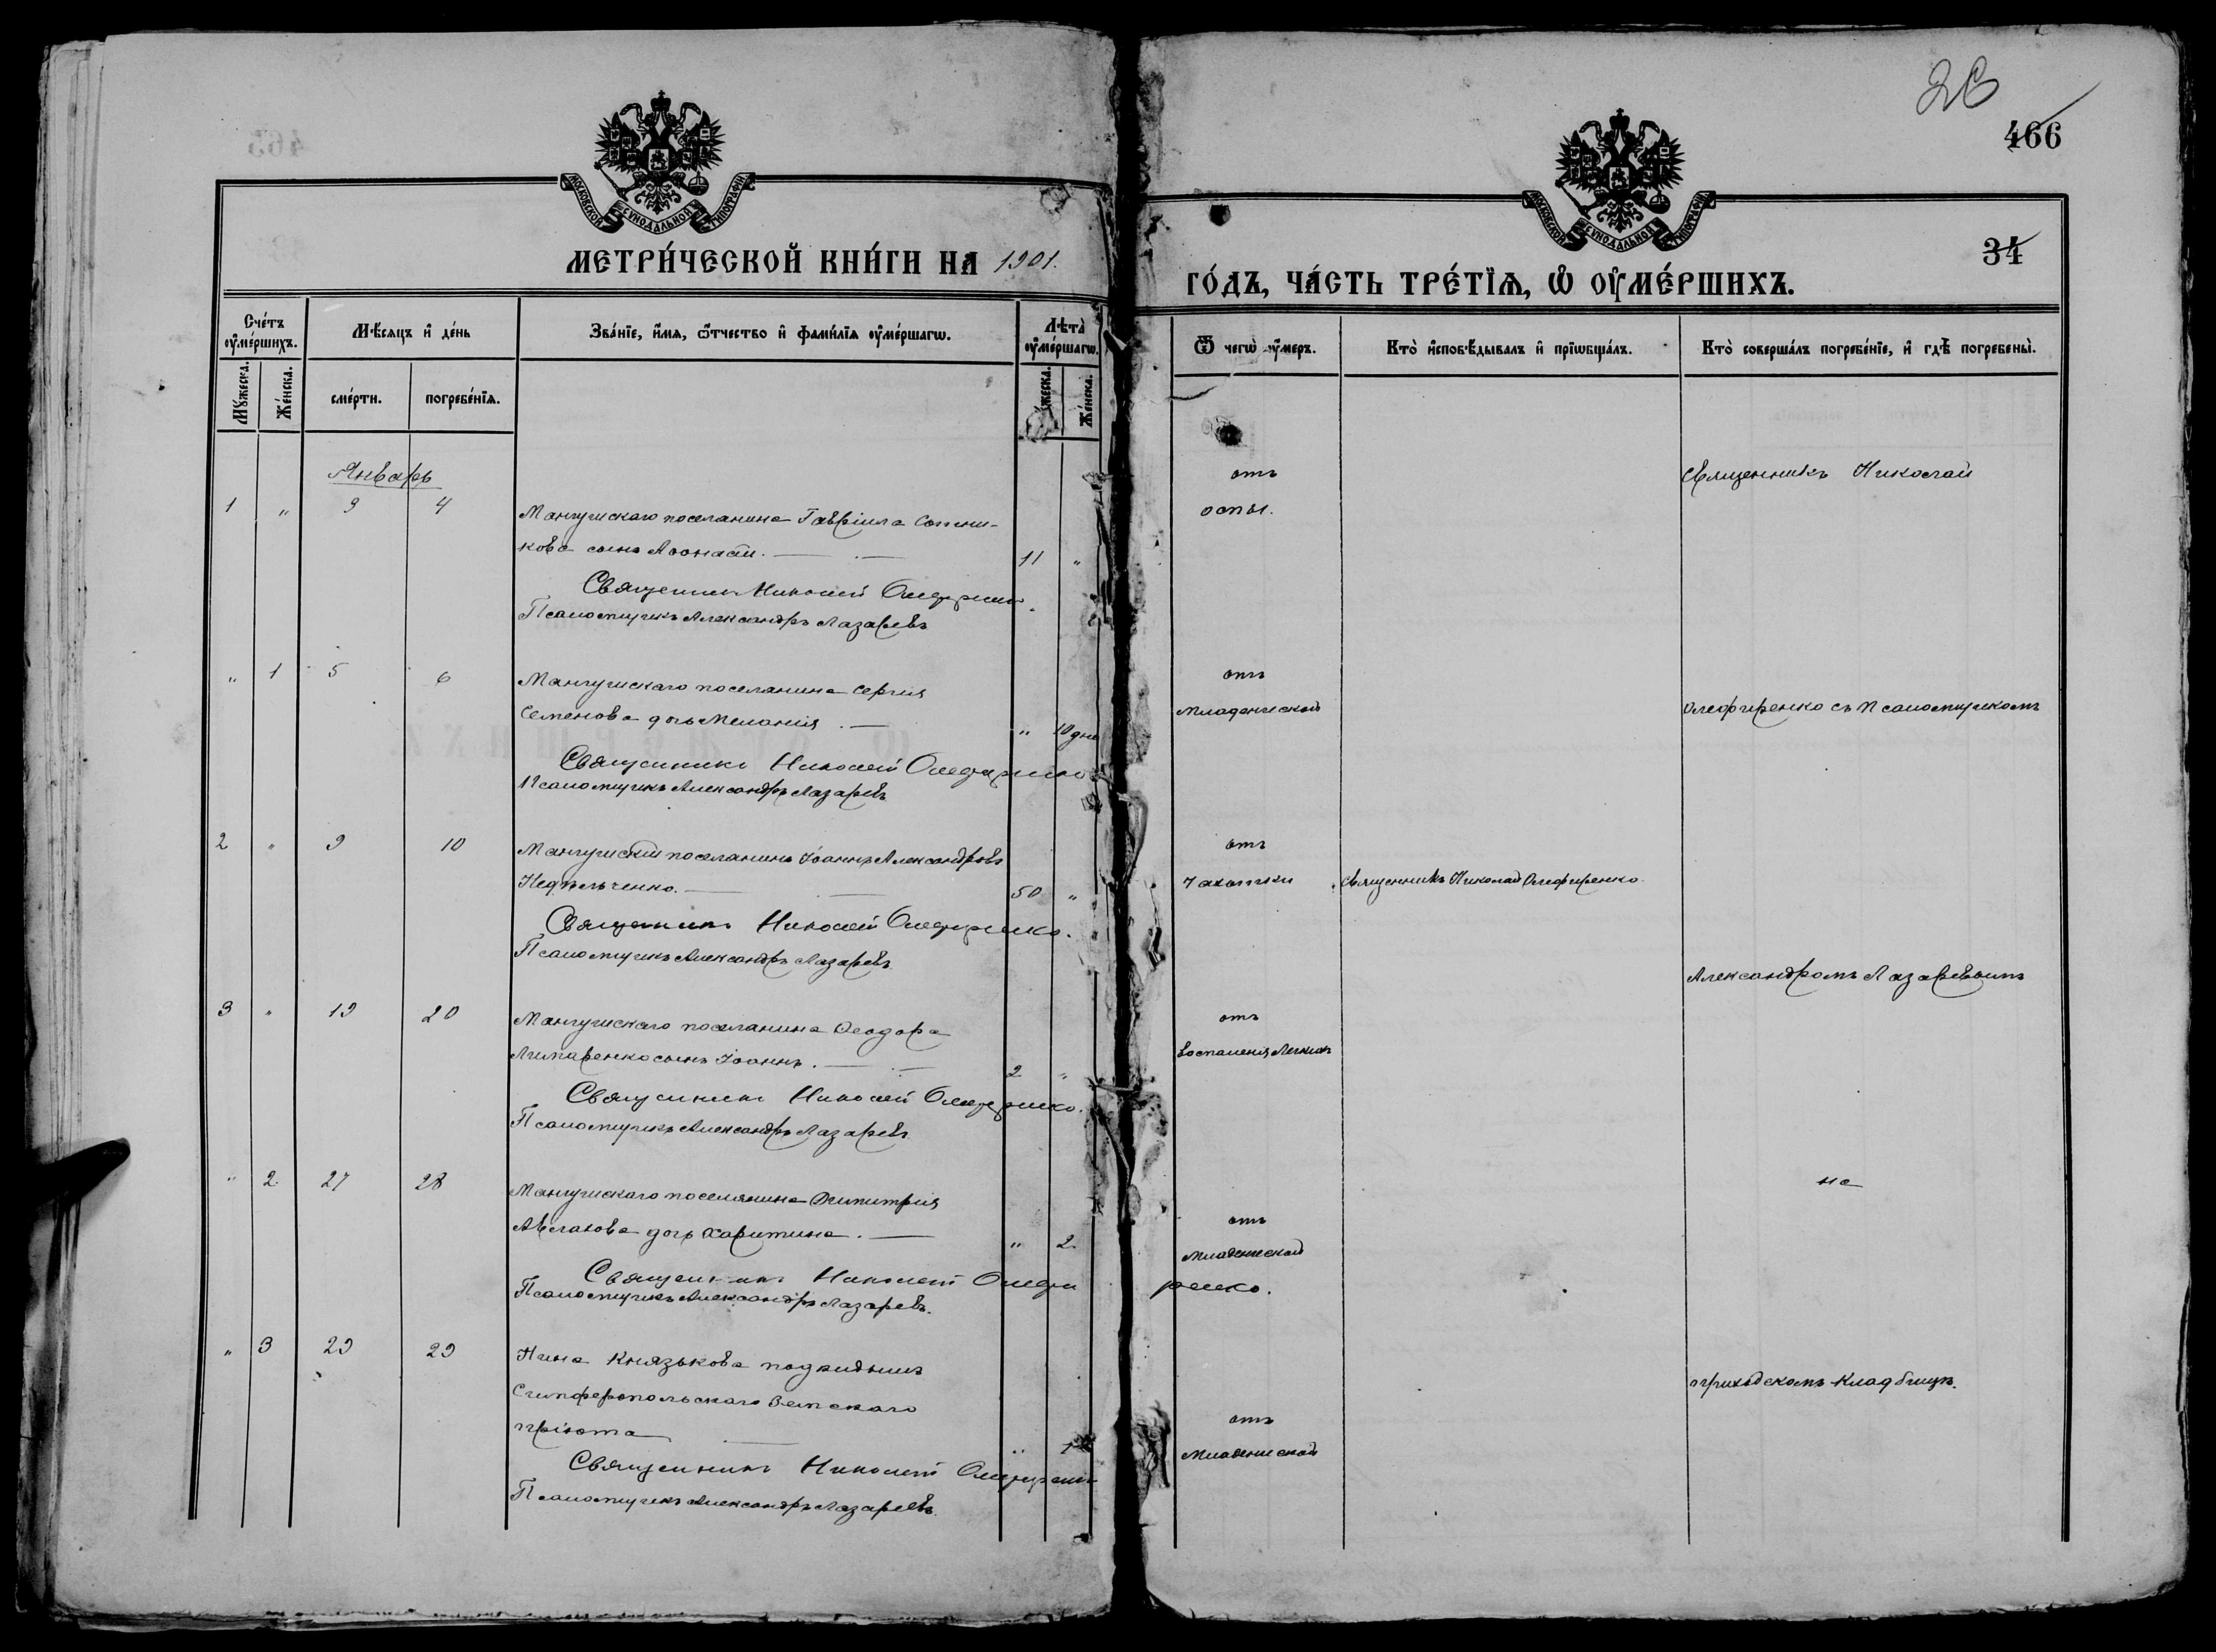 28
466
34
МОСКОВСКОЙ СѴНОДАЛЬНОЙ ТИПОГРАФІИ
МОСКОВСКОЙ СѴНОДАЛЬНОЙ ТИПОГРАФІИ
МЕТРИ́ЧЕСКОЙ КНИ́ГИ НА 1901.
ГО́ДЪ, ЧА́СТЬ ТРЕ́ТЇѦ, Ѡ҆ ОУ҆МЕ́РШИХЪ.
Сче́тъ оу҆ме́ршихъ.
Мѣ́сяцъ и҆ де́нь
Зва́нїе, и҆́мя, ѻ҆́тчество и҆ фами́лїя оу҆ме́ршагѡ.
Лѣ́та оу҆ме́ршагѡ.
Ѿ чегѡ̀ оу҆́меръ.
Кто̀ и҆сповѣ́дывалъ и҆ прїѡбща́лъ.
Кто̀ соверша́лъ погребе́нїе, и҆ гдѣ̀ погребены̀.
Мꙋ́жеска.
Же́нска.
сме́рти.
погребе́нїя.
жеска.
Же́нска.
Январь
1 " 3 4
Мангушскаго поселянина Гавріила Сотни-
кова сынъ Аѳонасій.
11 "
отъ
оспы.
Священникъ Николай
Священникъ Николай Олефиренко.
Псаломщикъ Александръ Лазаревъ
" 1 5 6
Мангушскаго поселянина Сергія
Семенова дочь Меланія.
" 10 дне
отъ
Младенческой
Олефиренко съ Псаломщикомъ
Священникъ Николай Олефиренко
Псаломщикъ Александръ Лазаревъ
2 " 9 10
Мангушскій поселянинъ Іоаннъ Александровъ
Недѣльченко.
50 "
отъ
Чахотки
Священникъ Николай Олефиренко.
Священникъ Николай Олефиренко.
Псаломщикъ Александръ Лазаревъ
Александромъ Лазаревымъ
3 " 19 20
Мангушскаго поселянина Ѳеодора
Лимаренко сынъ Іоаннъ.
2 "
отъ
воспаленія Легкихъ
Священникъ Николай Олефиренко.
Псаломщикъ Александръ Лазаревъ
" 2 27 28
Мангушскаго поселянина Димитрія
дочь Харитина.
" 2.
отъ
Младенческой
на
Священникъ Николай Олефиренко.
Псаломщикъ Александръ Лазаревъ.
" 3 29 29
Нина Князькова подкидышъ
Симферопольскаго Земскаго
пріюта
" 1
отъ
Младенческой
приходскомъ Кладбищѣ.
Священникъ Николай Олефиренко
Псаломщикъ Александръ Лазаревъ.